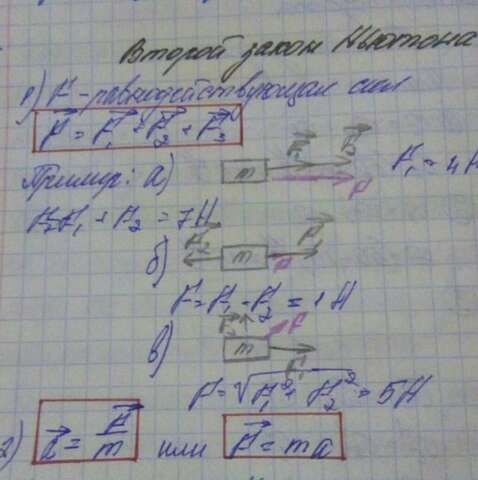 Второй закон Ньютона
1) F⃗ - равнодействующая сил
F⃗ = F⃗₁ + F⃗₂ + F⃗₃
Пример: а) m F⃗₁ F⃗₂ F F₁ = 4Н
F=F₁ + F₂ = 7Н
б) F⃗₂ m F F⃗₁
F=F₁ - F₂ = 1Н
в) F⃗₂ m F F⃗₁
F=√F₁² + F₂² = 5Н
2) a⃗ = F⃗/m или F⃗ = ma